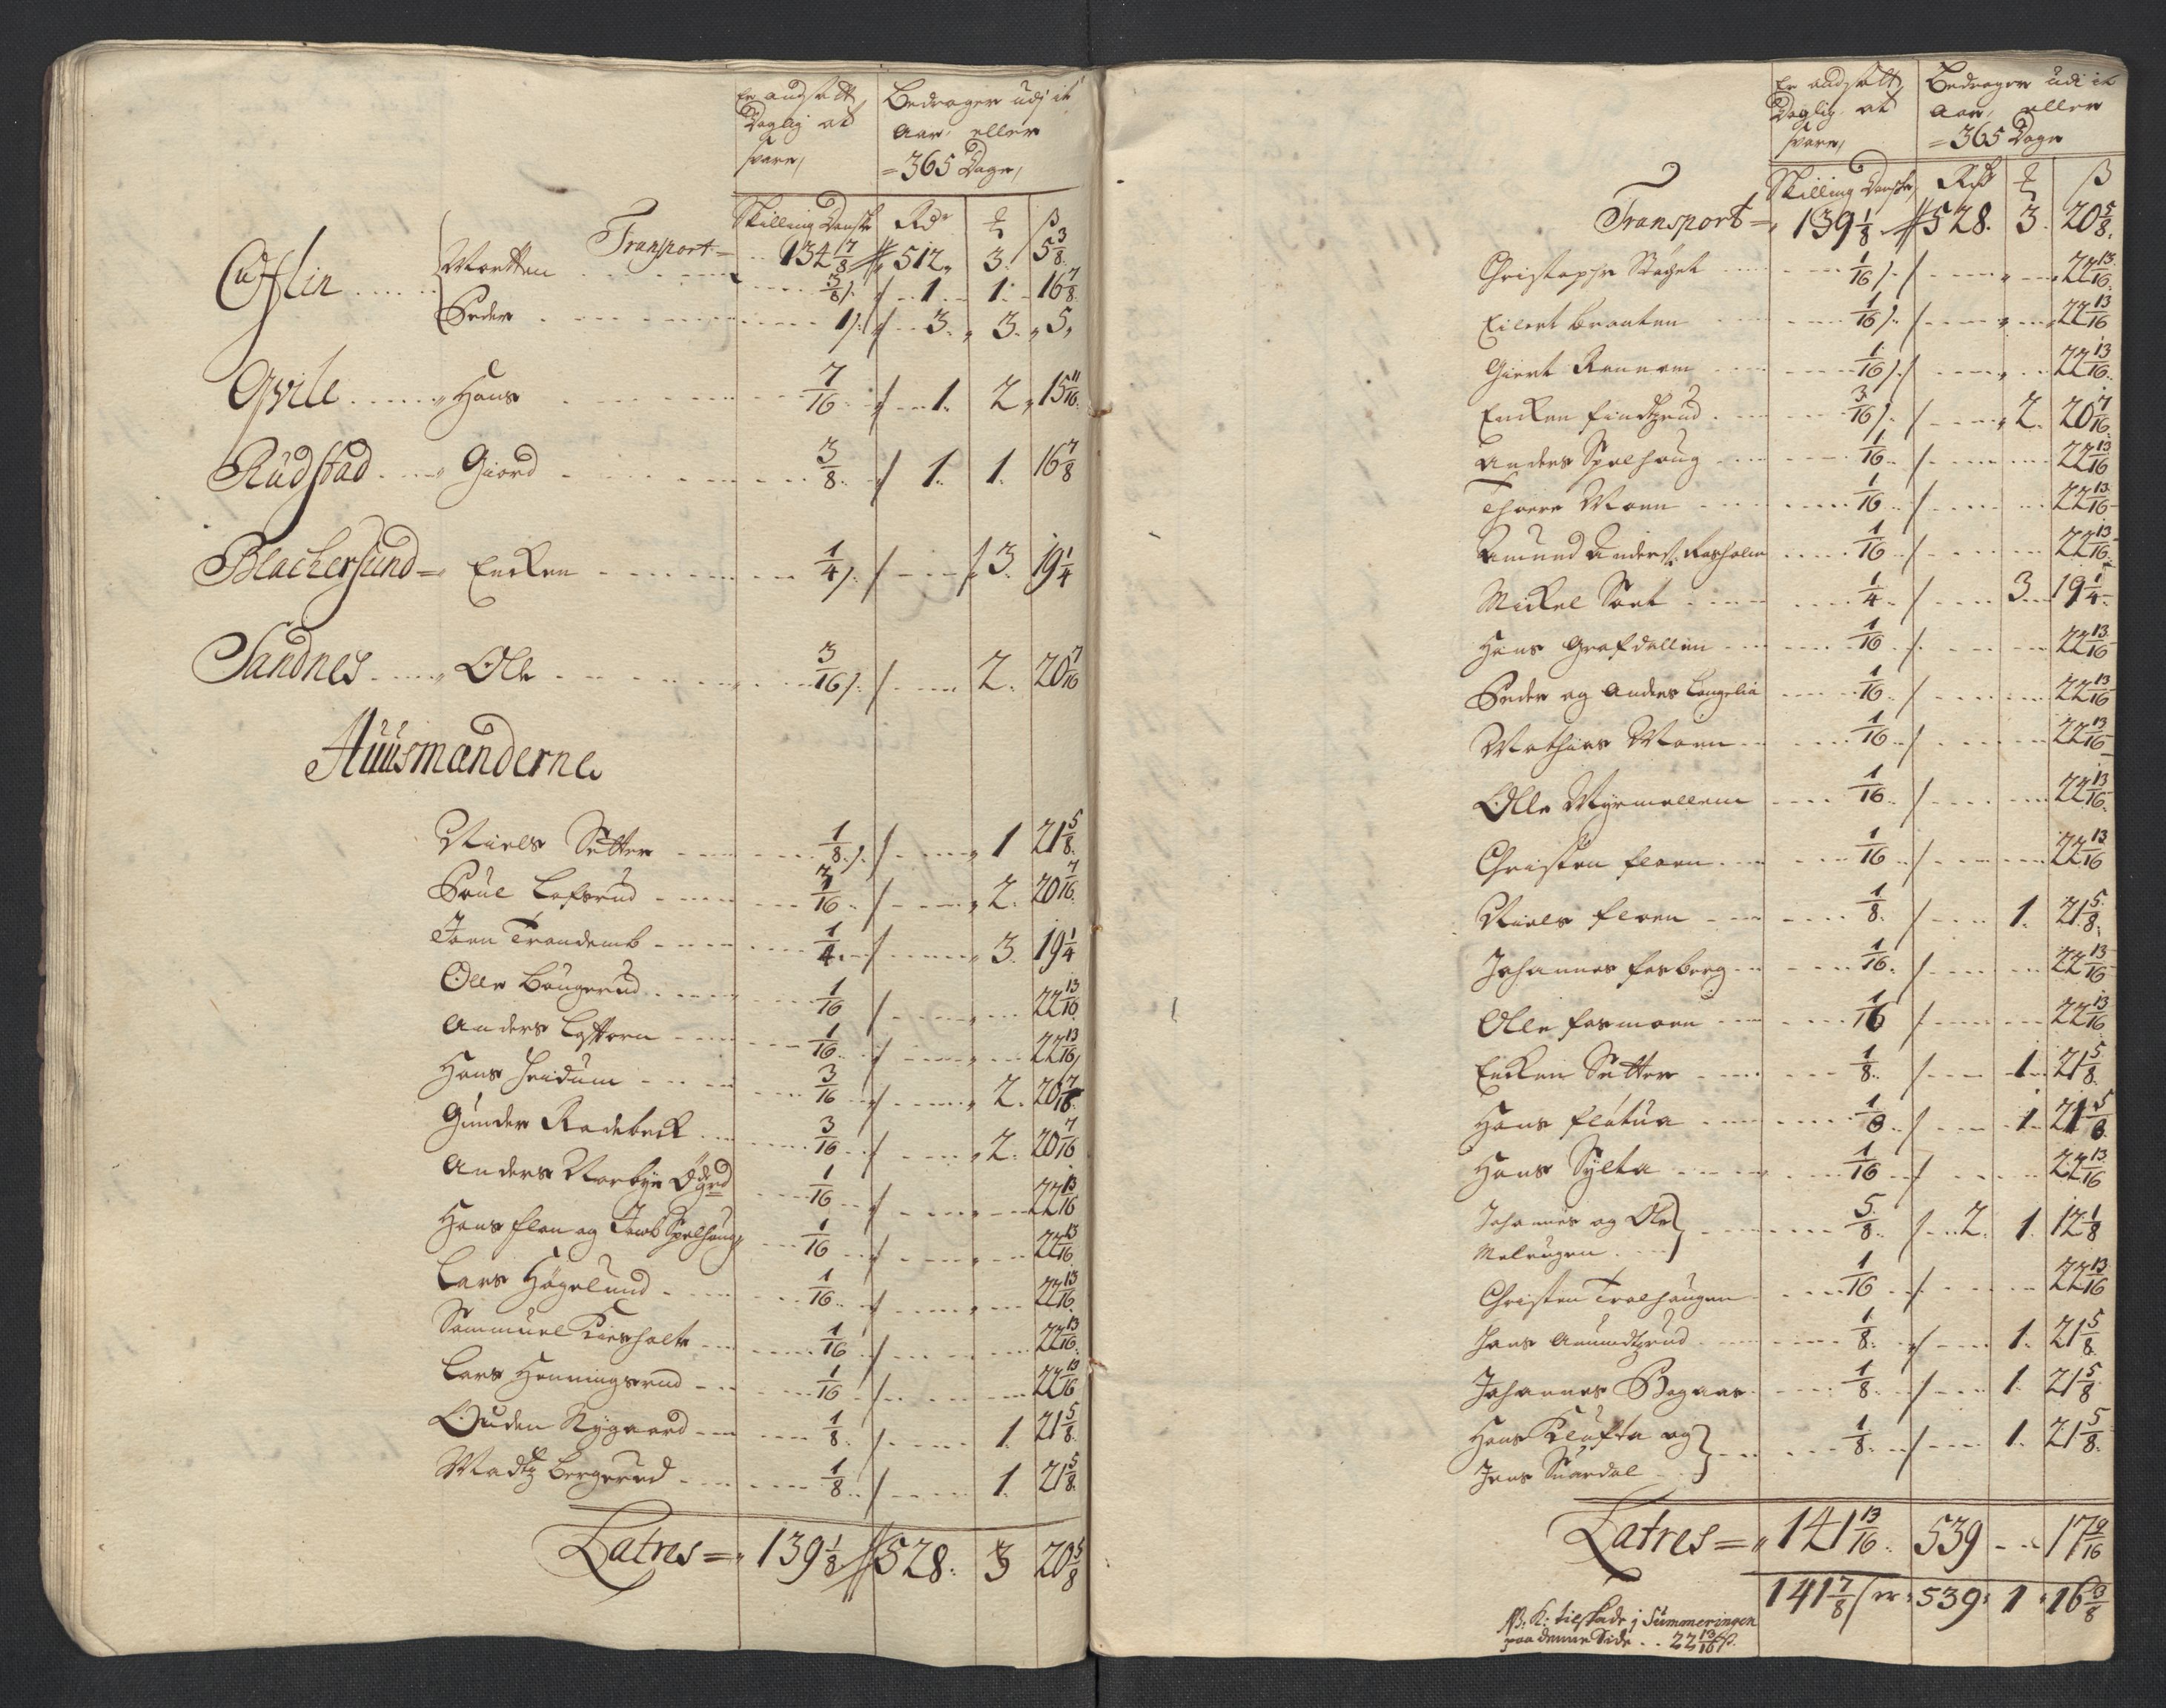 Er andsatt Daglig at svare,
Bedrager udj it Aar, eller =365 Dage,
Skilling Danske Rdr ß
Transport= 134 7/8 512 3 5 3/8
Mortten 3/8 1 1 16 7/8
Peder 1 3 3 5
Hans 7/16 1 2 15 11/16
Rudstad Giord 3/8 1 1 16 7/8
Blachersund= Encken 1/4 3 19 1/4
Sandnes Ole 3/16 2 20 7/16
Huusmænderne
Niels Setter 1/8 1 21 5/8
Poul Lofsrud 3/16 2 20 7/16
Joen Trondemb 1/4 3 19 1/4
Olle Baugerud 1/16 22 13/16
Anders 1/16 22 13/16
Hans 3/16 2 20 7/16
Gunder Radebeck 3/16 2 20 7/16
Anders Norbye Ødegrd 1/16 22 13/16
Hans floen og Jacob Spelhaug 1/16 22 13/16
Lars Høgelund 1/16 22 13/16
Sammuel Kiersholte 1/16 22 13/16
Lars Henningsrud 1/16 22 13/16
Ouden Nygaard 1/8 1 21 5/8
Madtz Bergerud 1/8 1 21 5/8
Latres= 139 1/8 528 3 20 5/8
Er andsatt Daglig at svare,
Bedrager udi it Aar, eller =365 Dage
Skilling Danske Rdr ß
Transport= 139 1/8 528 3 20 5/8
Christopher 1/16 22 13/16
Eilert Braaten 1/16 22 13/16
Giert 1/16 22 13/16
Encken findtzrud 3/16 2 20 7/16
Anders Spelhaug 1/16 22 13/16
Thore Moen 1/16 22 13/16
Amund Anders: 1/16 22 13/16
Mickel 1/4 3 19 1/4
Hans Grafdallen 1/16 22 13/16
Peder og Anders Langelie 1/16 22 13/16
Mathias Moen 1/16 22 13/16
Olle Myrmellem 1/16 22 13/16
Christen floen 1/16 22 13/16
Niels floen 1/8 1 21 5/8
Johannes fosberg 1/16 22 13/16
Olle fosmoen 1/16 22 13/16
Encken Setter 1/8 1 21 5/8
Hans flatua 1/8 1 21 5/8
Hans Sylta 1/16 22 13/16
Johannes og Ole 5/8 2 1 12 1/8
Melaugen
Christen Trolhaugen 1/16 22 13/16
Hans Amundtzrud 1/8 1 21 5/8
Johannes 1/8 1 21 5/8
Hans Klufta og 1/8 1 21 5/8
Jens
Latres= 141 13/16 539 17 9/16
141 7/8 er 539 1 16 3/8
NB: K: tilskade j Summeringen
paa denne Side 22 13/16 ß.